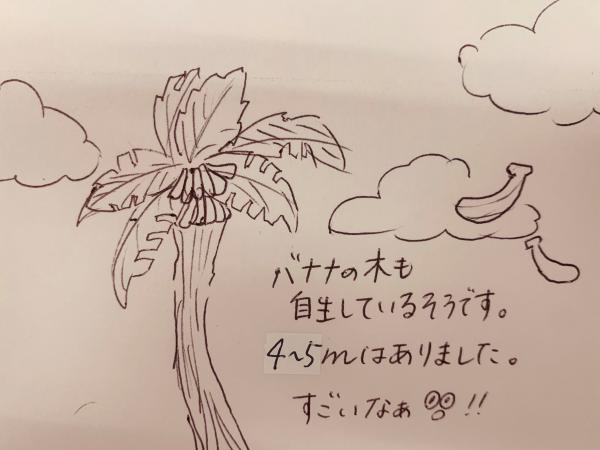 バナナの木も
自生しているそうです。
4~5mはありました。
すごいなぁ!!